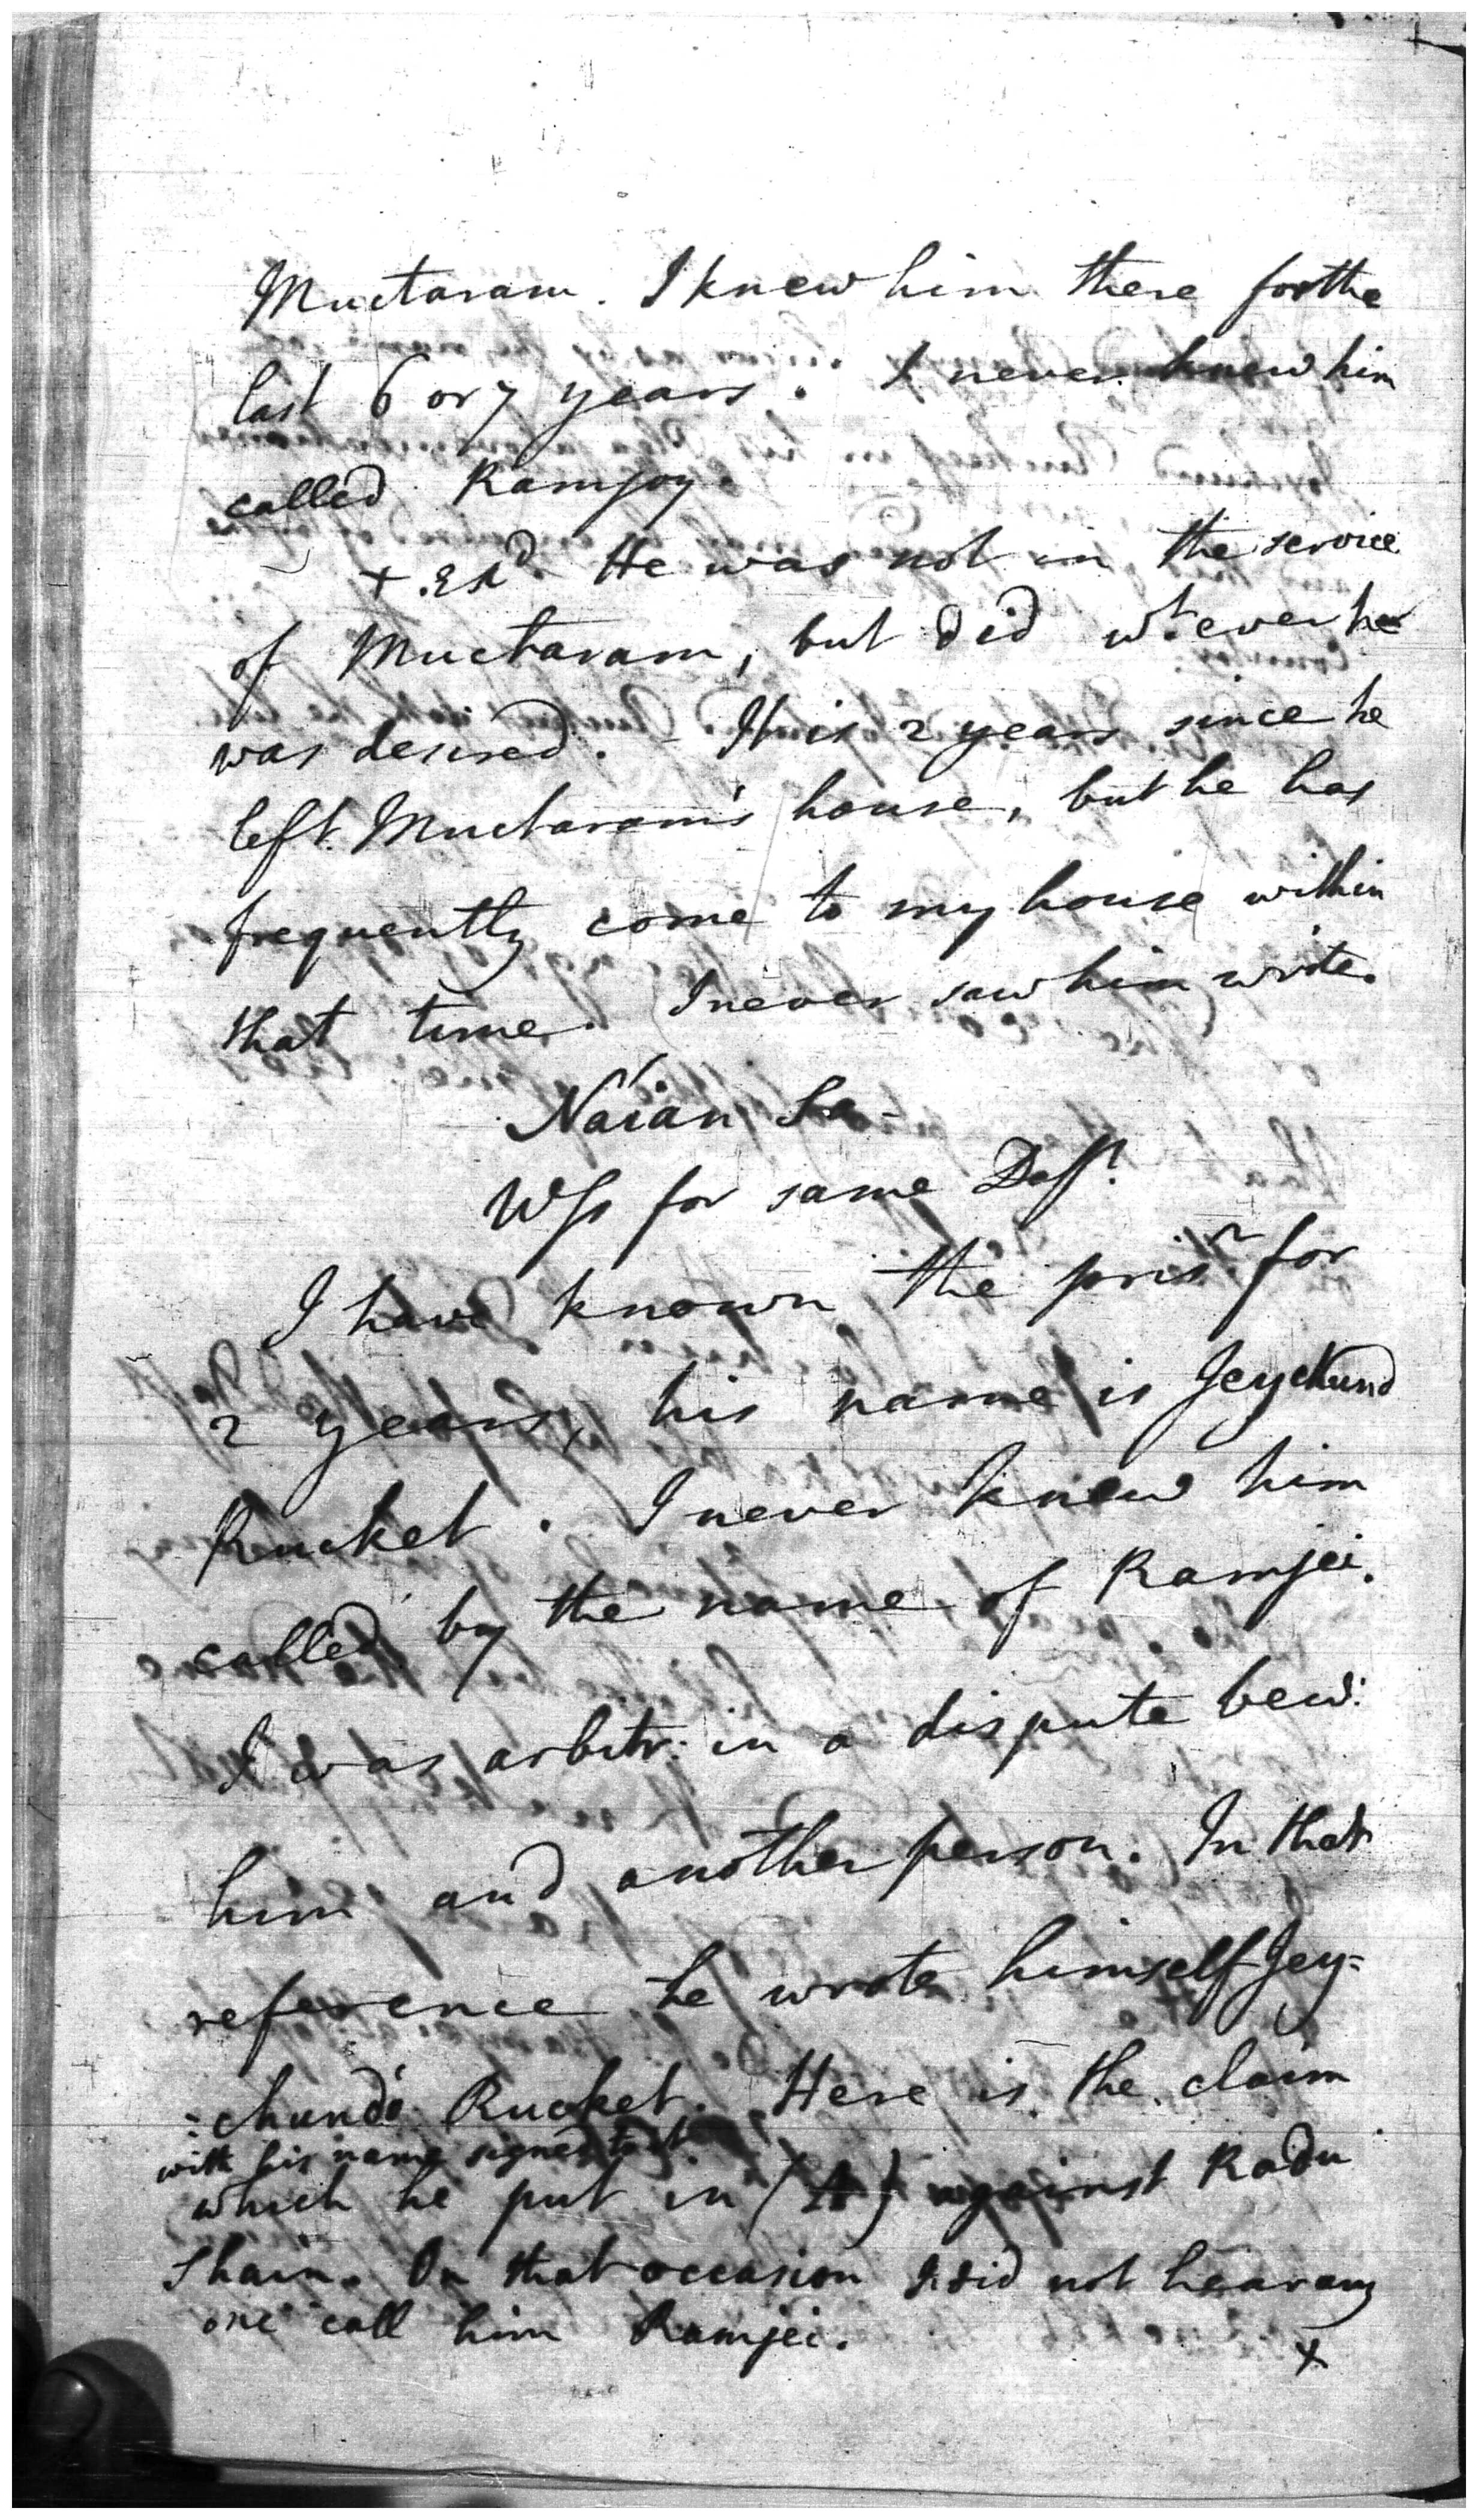 Muctaram. I knew him there for the
last 6 or 7 years. I never knew him
called Ramjoy
+ .Exd. He was not in the service
of Muctaram, but did wt.ever he
was desired. It is 2 years since he
left Muctaram's house, but he has
frequently come to my house within
that time. I never saw him write.
Naian
Wss for same Deft.
I have known the prisr for
2 years, his name is Jeychund
Rucket. I never knew him
called by the name of Ramjei.
I was arbitr: in a dispute bew:
him and another person. In that
reference he wrote himself Jey=
=chund Rucket. Here is the claim
with his name signed to it
which he put in (A) against Radu
Sham. On that occasion I did not hear any
one call him Ramjei.
+